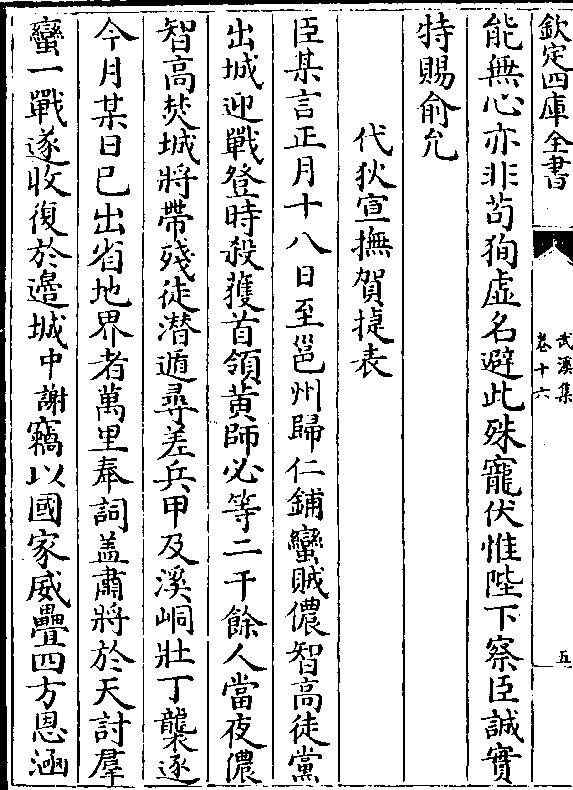 欽定四庫全書
武溪集
卷十六
五
能無心亦非苟狥虛名避此殊寵伏惟陛下察臣誠實
特賜俞允
代狄宣撫賀捷表
臣某言正月十八日至邕州歸仁鋪蠻賊儂智高徒黨
出城迎戰登時殺獲首領黄師必等二千餘人當夜儂
智高焚城將帶殘徒潜遁尋差兵甲及溪峒壯丁襲逐
今月某日已出省地界者萬里奉詞盖肅將於天討羣
蠻一戰遂收復於邉城中謝竊以國家威疊四方恩涵